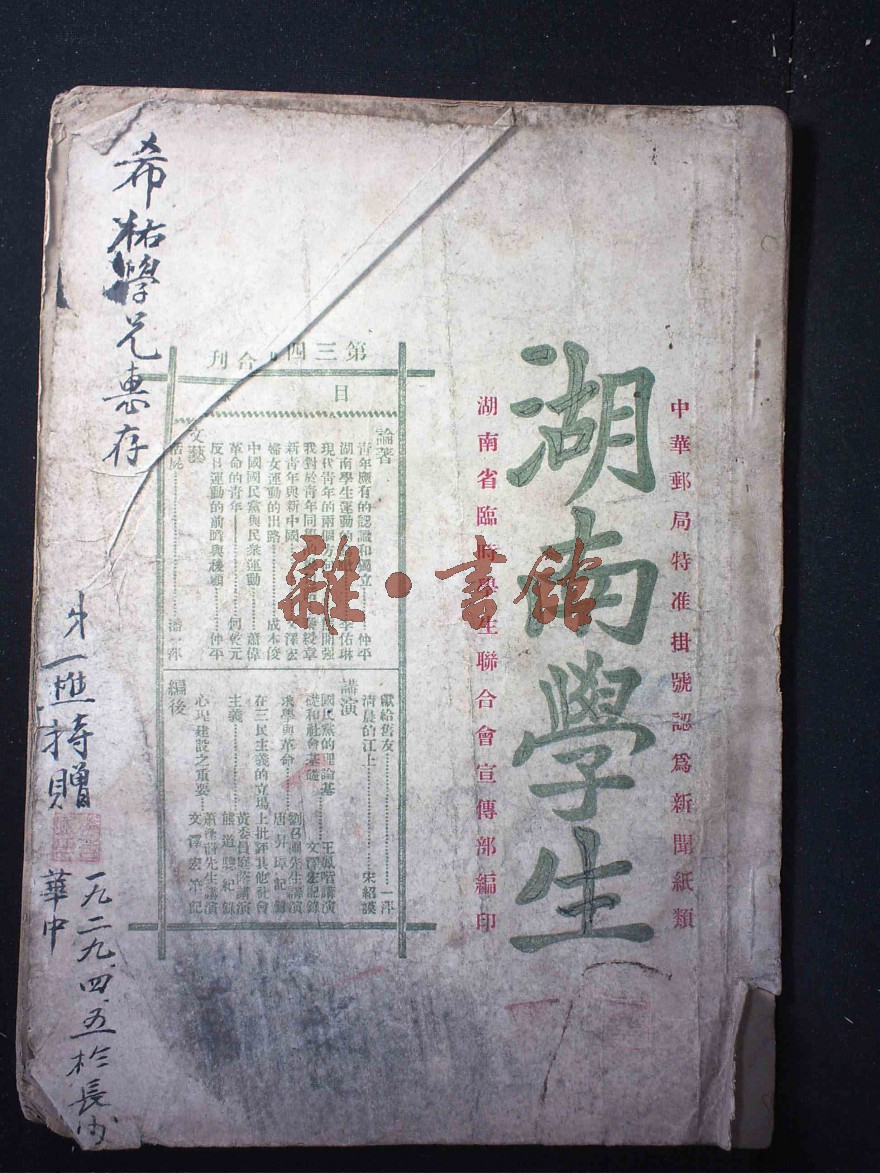 中華郵局特准掛號認為新聞紙類
湖南學生
湖南省臨時學生聯合會宣傳部編印
第三四 合刊
目
論著
青年應有的認識和獨立……仲平
湖南學生運動的 李佑琳
現代青年的兩個方向
我對於青年同
新青年與新中國 文澤宏
婦女運動的出路……成本俊
中國國民黨與民衆運動……蕭偉
革命的青年……何乾元
反日運動的前瞻與後顧……仲平
文藝
潘一萍
獻給舊友……一萍
清晨的江上……宋紹謨
講演
國民黨的理論基礎和社會基礎……王鳳喈講演 文澤宏記錄
求學與革命……劉召圃先生講演 唐昇璋記錄
在三民主義的立場上批評其他社會主義……黃委員庭蔭講演 熊道驄紀錄
心理建設之重要……先生講演 文澤宏筆記
編後
希祐學兄惠存
弟一樵持贈
一九二九.四.五於長沙
華中
雜·書館